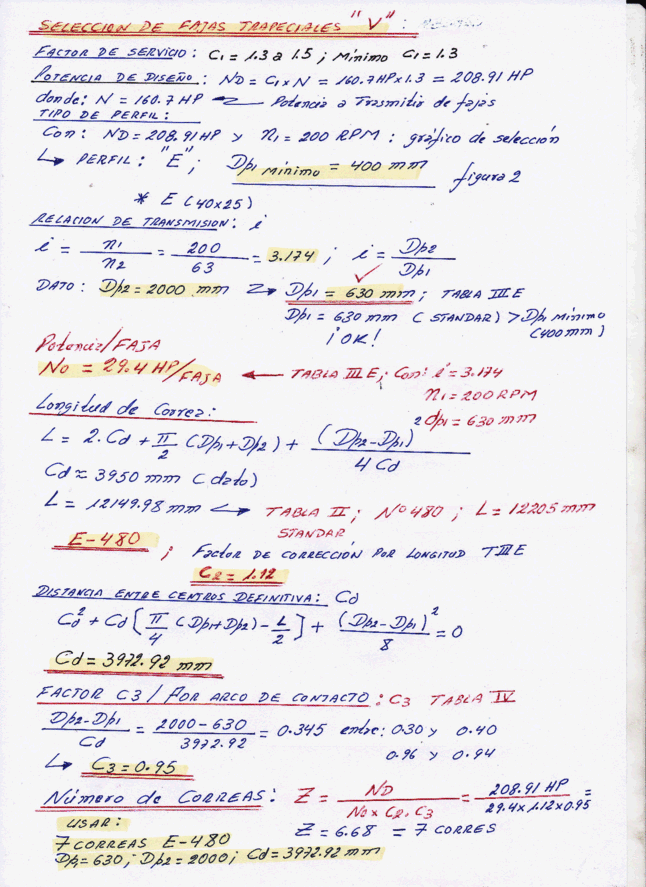 SELECCION DE FAJAS TRAPECIALES "V" :
FACTOR DE SERVICIO: C1 = 1.3 a 1.5 ; Mínimo C1 = 1.3
POTENCIA DE DISEÑO : ND = C1 x N = 160.7 HP x 1.3 = 208.91 HP
donde: N = 160.7 HP ← Potencia a Trasmitir de fajas
TIPO DE PERFIL:
Con: ND = 208.91 HP y n1 = 200 RPM : gráfico de selección
↳ PERFIL: "E" ; Dp1 MÍNIMO = 400 mm figura 2
* E (40x25)
RELACION DE TRANSMISION: i
i = n1/n2 = 200/63 = 3.174 ; i = Dp2/Dp1
DATO: Dp2 = 2000 mm → Dp1 = 630 mm ; TABLA III E
Dp1 = 630 mm (STANDAR) > Dp1 MÍNIMO
¡OK! (400 mm)
Potencia/FAJA
No = 29.4 HP/FAJA ← TABLA III E; Con: i = 3.174
n1 = 200 RPM
Longitud de Correa: 2 dp1 = 630 mm
L = 2.Cd + π/2 (Dp1+Dp2) + (Dp2-Dp1)/4 Cd
Cd ≈ 3950 mm (dato)
L = 12149.98 mm ↔ TABLA II ; Nº 480 ; L = 12205 mm
STANDAR
E-480 ; Factor DE CORRECCIÓN POR LONGITUD TIIIE
C2 = 1.12
DISTANCIA ENTRE CENTROS DEFINITIVA: Cd
Cd² + Cd [π/4 (Dp1+Dp2) - L/2] + (Dp2-Dp1)²/8 = 0
Cd = 3972.92 mm
FACTOR C3 / POR ARCO DE CONTACTO: C3 TABLA IV
Dp2-Dp1/Cd = 2000-630/3972.92 = 0.345 entre: 0.30 y 0.40
0.96 y 0.94
↳ C3 = 0.95
Número de CORREAS: Z = ND/No x C2.C3 = 208.91 HP/29.4x1.12x0.95 =
USAR: Z = 6.68 = 7 CORRES
7 CORREAS E-480
Dp1 = 630 ; Dp2 = 2000 ; Cd = 3972.92 mm